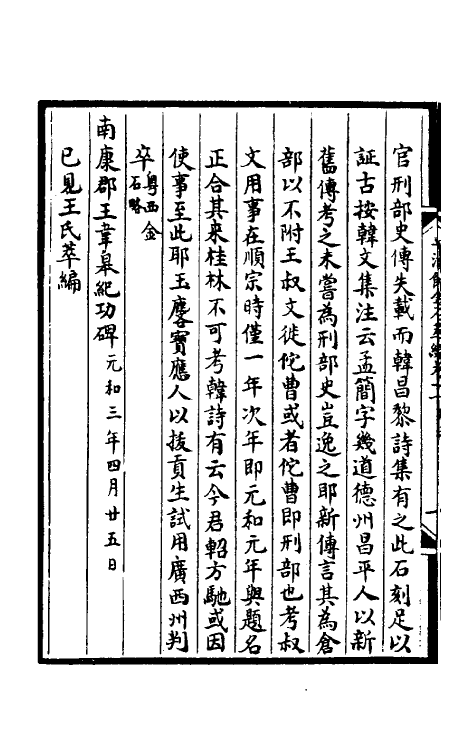 官刑部史傳失載而韓昌黎詩集有之此石刻足以
証古按韓文集注云孟簡字幾道德州昌平人以新
舊傳考之未嘗為刑部史豈逸之耶新傳言其為倉
部以不附王叔文徙佗曹或者佗曹即刑部也考叔
文用事在順宗時僅一年次年即元和元年與題名
正合其來桂林不可考韓詩有云今君軺方馳或因
使事至此耶玉麐寶應人以拔貢生試用廣西州判
卒粵西金石略
南康郡王韋皋紀功碑元和三年四月廿五日
已見王氏萃編